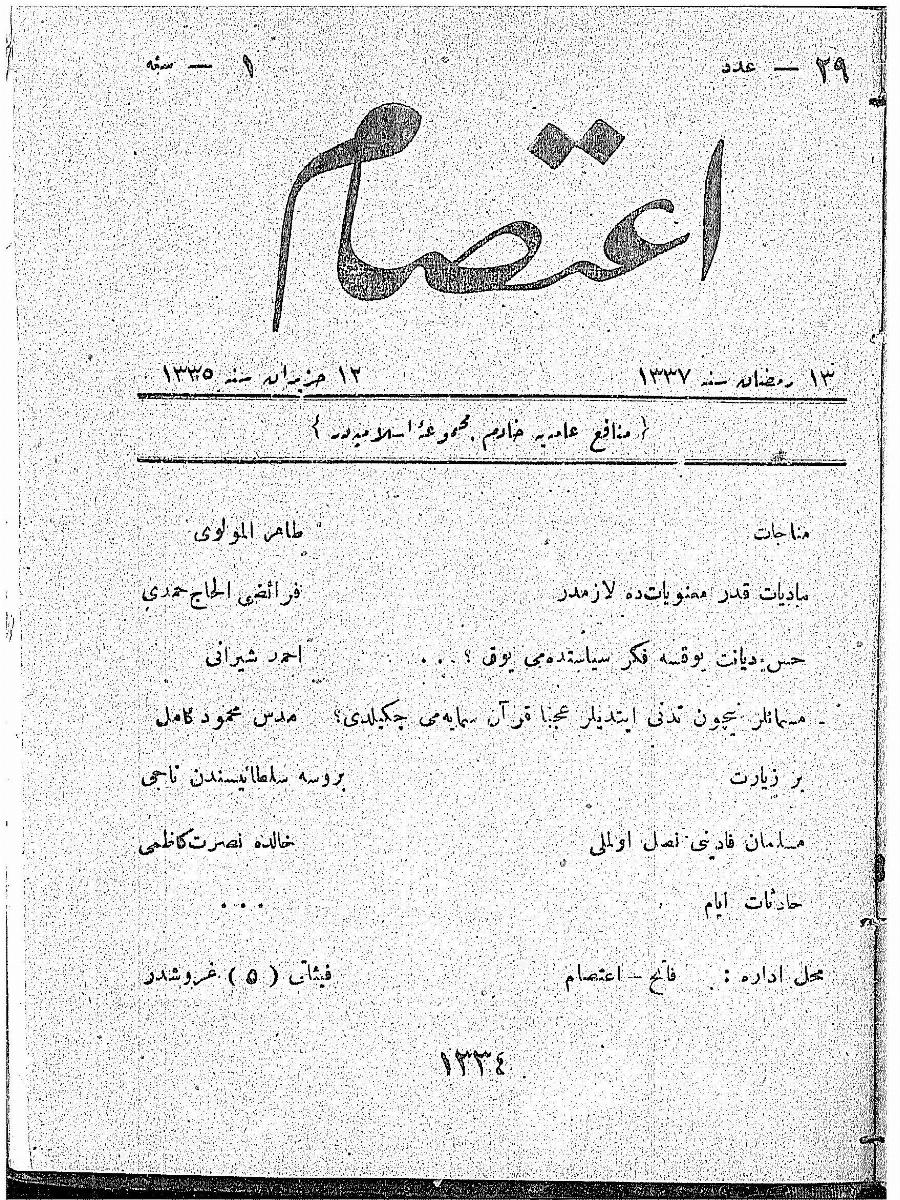 ٢٩ — عدد ١ — سنه
اعتصام
١٣ رمضان سنه ١٣٣٧ ١٢ حزیران سنه ١٣٣٥
{ منافع عامه‌یه خادم مجموعهٔ اسلامیه‌در }
مناجات طاهر المولوی
مادیات قدر معنویات‌ده لازمدر فرائضی الحاج حمدی
حس دیانت یوقسه فکر سیاستده‌می یوق ؟ . . . احمد شیرانی
مسلمانلر نیچون تدنی ایتدیلر عجبا قرآن سمایه‌می چکیلدی؟ مدرس محمود کامل
بر زیارت بروسه سلطانیسندن ناجی
مسلمان قادینی نصل اولملی خالده نصرت کاظمی
حادثات ایام . . .
محل اداره : فاتح — اعتصام فیئاتی ( ٥ ) غروشدر
١٣٣٤